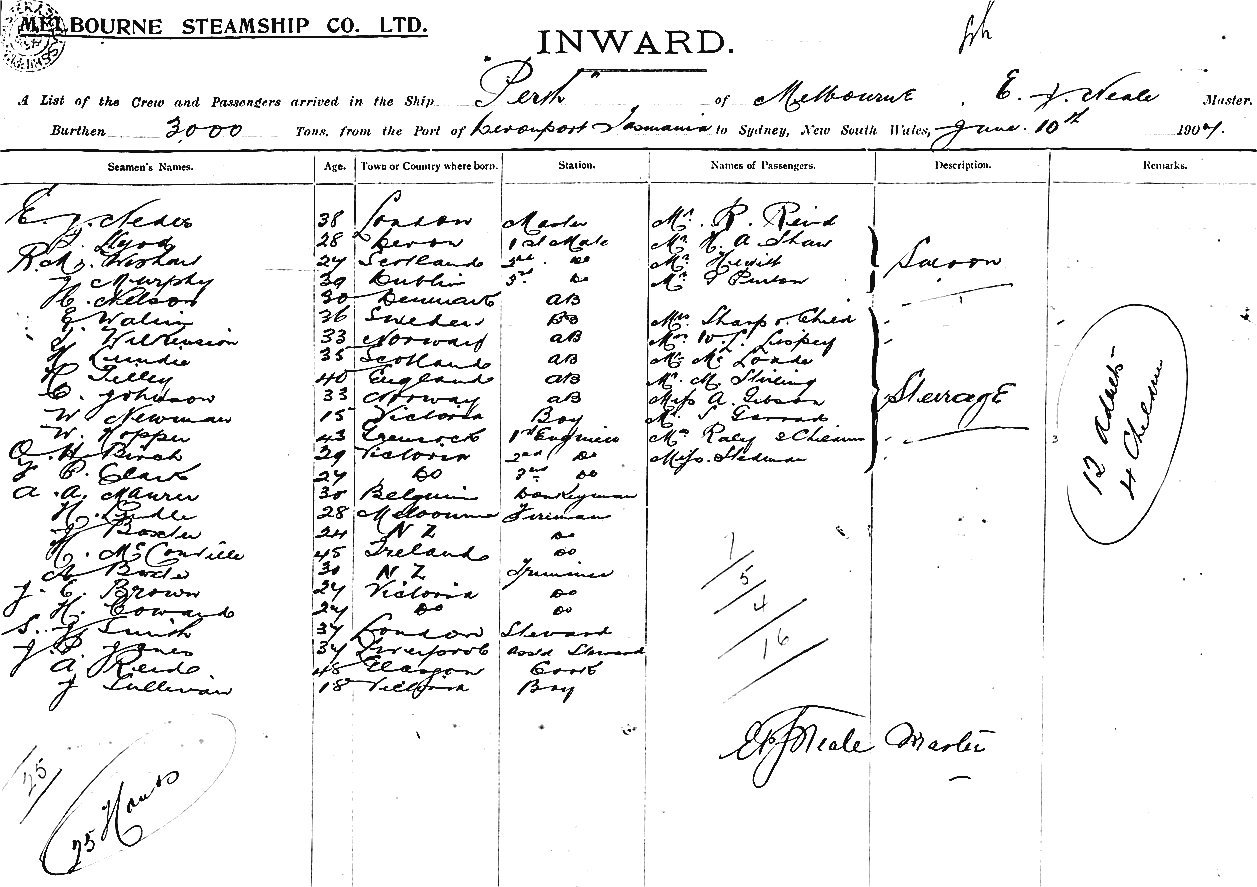 MELBOURNE STEAMSHIP CO. LTD.
INWARD.
A List of the Crew and Passengers arrived in the Ship "Perth" of Melbourne, E. J. Neale Master.
Burthen 3000 Tons, from the Port of Devonport Tasmania to Sydney, New South Wales, June 10th 190
Seamen's Names. Age. Town or Country where born. Station. Names of Passengers. Description. Remarks.
E J Neale 38 London Master Mr. R. Reid
28 Devon 1st Mate Mr H. A. Shaw
27 Scotland 2nd Do Mr Hewitt Saloon
J Murphy 39 Dublin 3rd Do Mr
H. Nelson 30 Denmark AB
36 Sweden Do Mrs Sharp & Child
Wilkinson 33 Norway AB Mrs
H Lundie 35 Scotland AB
H Tilley 40 England AB Mr. M. Stirling
C. Johnson 33 Norway AB Miss A. Gibson Steerage
W. Newman 15 Victoria Boy
W. Hopper 43 1st Engineer Mrs Raley & Children
O. H. Birch 29 Victoria 2nd Do Miss. Stedman
J P. Clark 27 Do 3rd Do
A. A. Maurer 30 Belguim Donkeyman
H. 28 Melbourne Fireman
J Baxter 24 N Z Do
H. McConville 45 Ireland Do
A. Bode 30 N Z Trimmer
J. E. Brown 24 Victoria Do
H. Coward 24 Do Do
S. J Smith 37 London Steward
J. P. Jones 34 Liverpool Asst Steward
A. Reid 48 Glasgow Cook
J Sullivan 18 Victoria Boy
12 Adults
4 Children
7
5
4
16
E J Neale Master
25
25 Hands